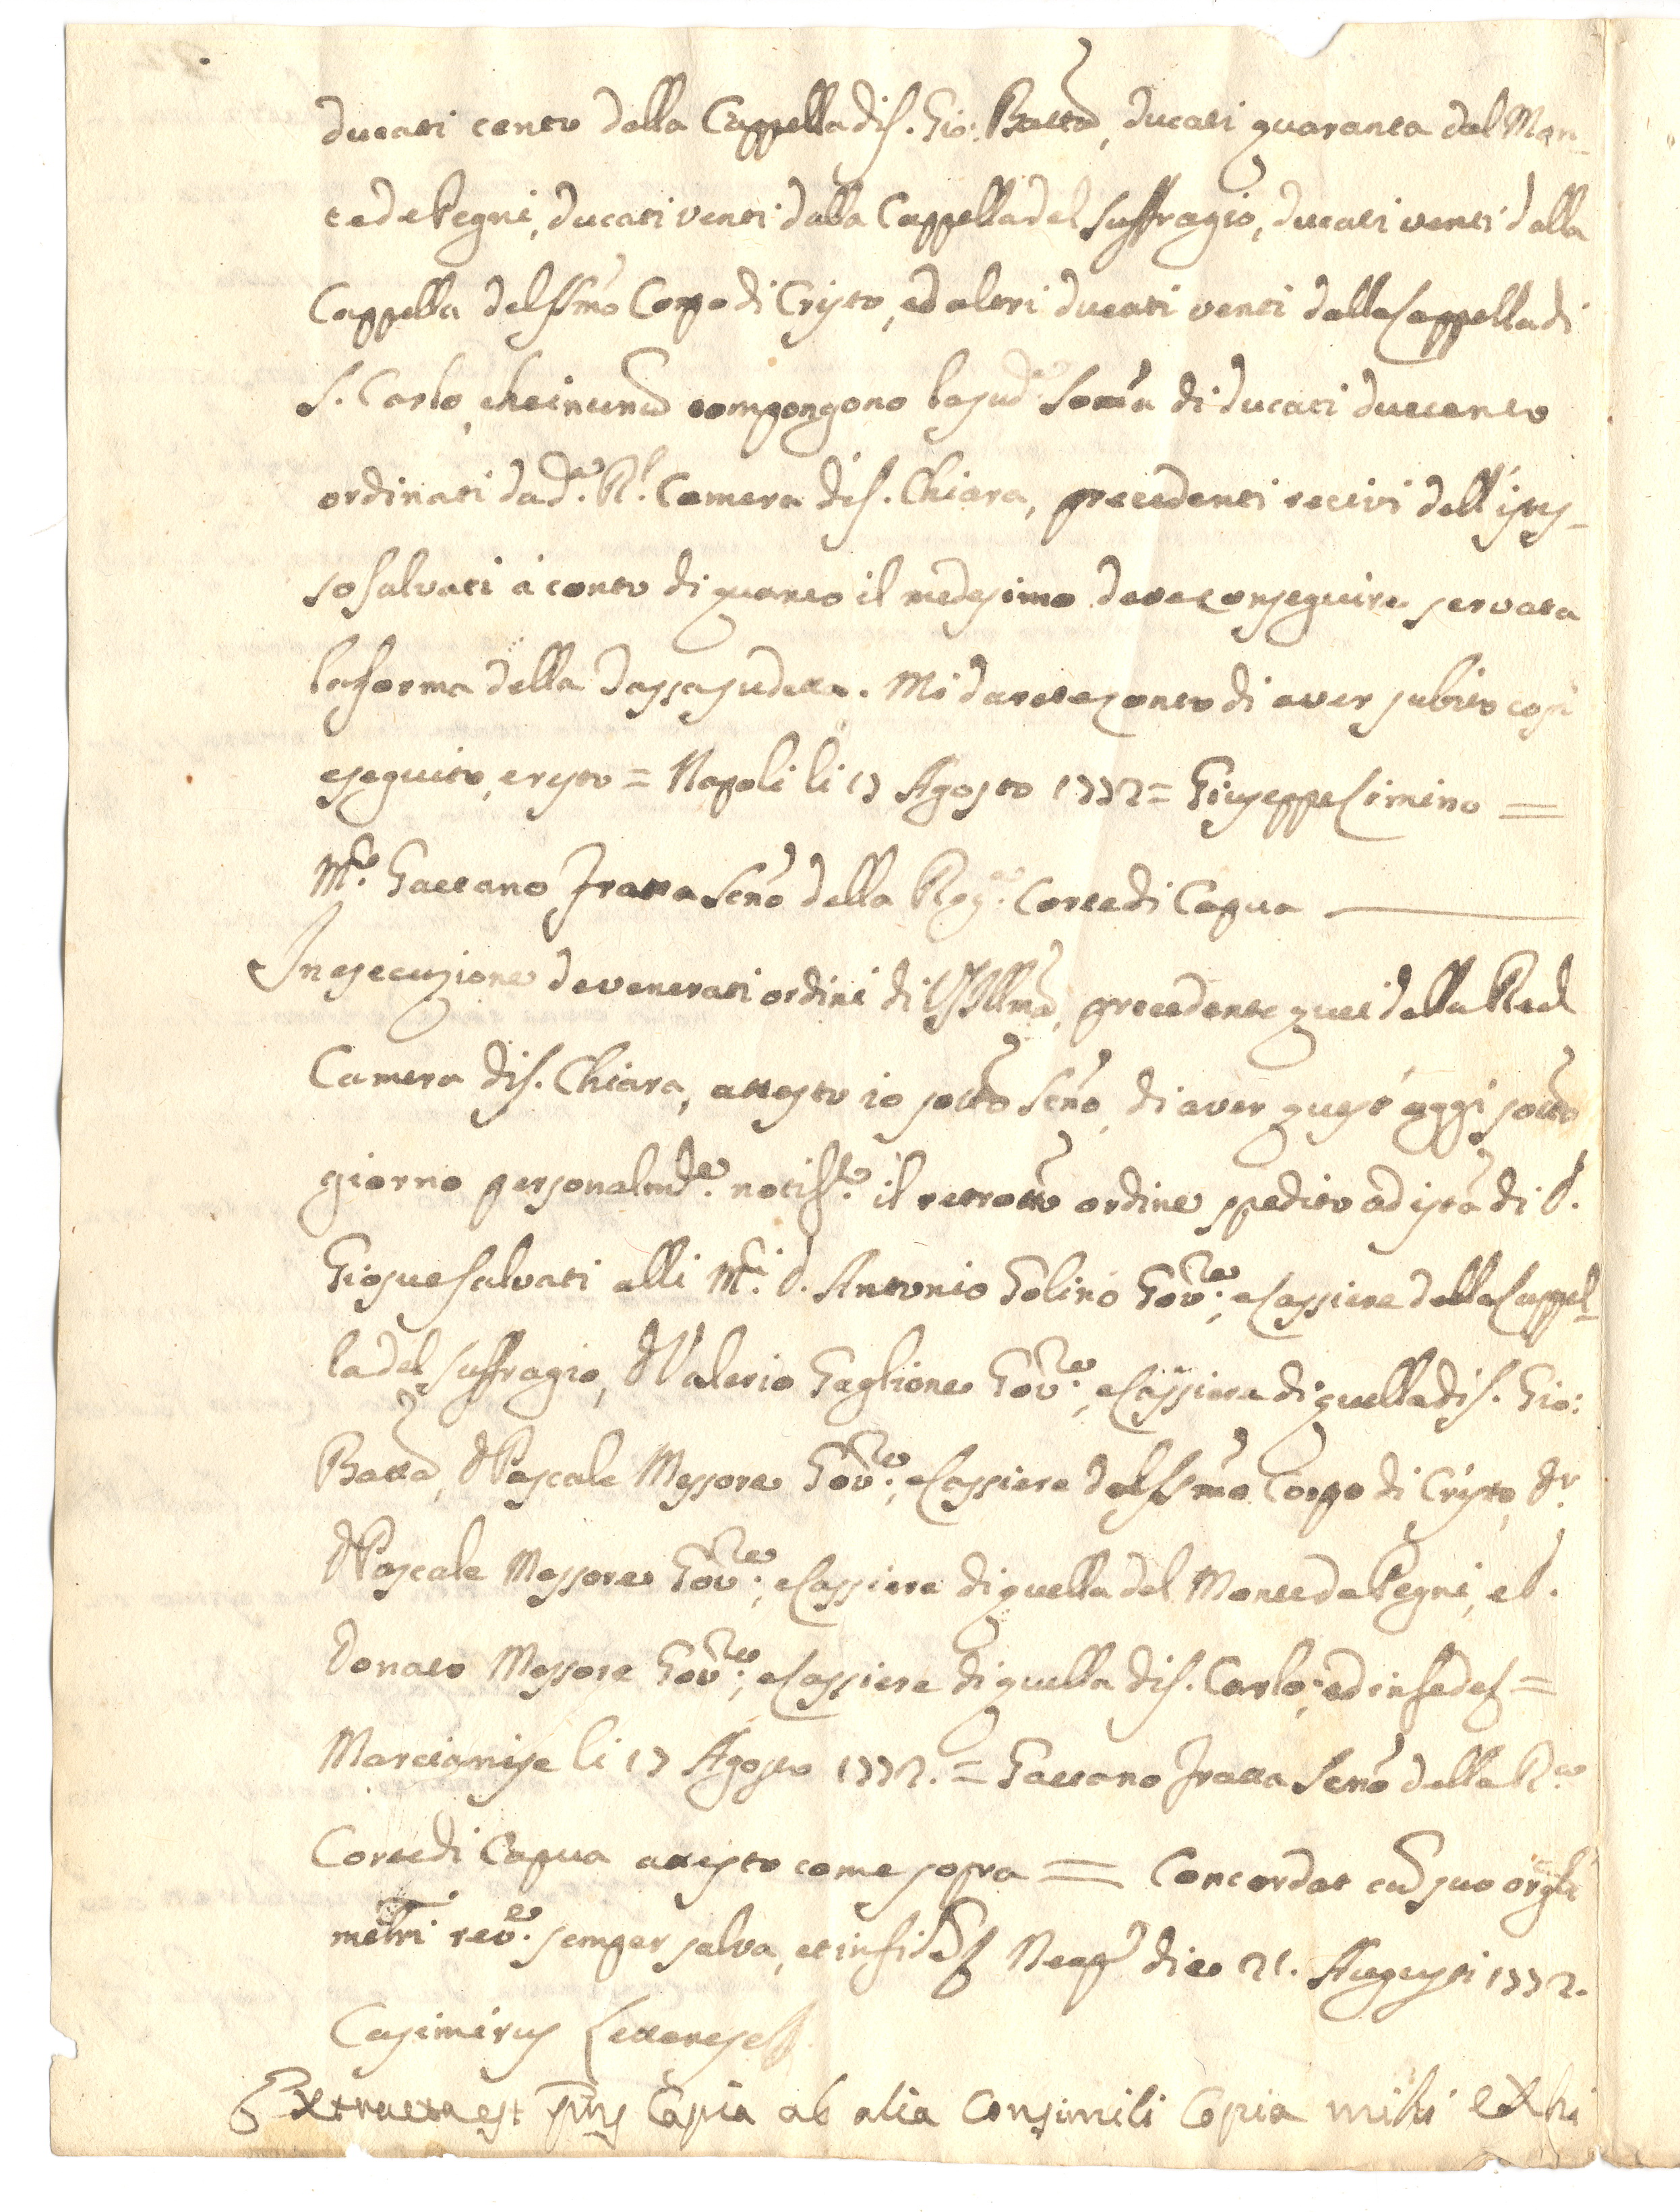 ducati cento dalla Cappella di S. Gio: Batta, ducati quaranta dal Mon-
te de Pegni, ducati venti dalla Cappella del Suffragio, ducati venti dalla
Cappella del SSmo Corpo di Cristo, ed altri ducati venti dalla Cappella di
S. Carlo, che in uno compongono la sud.a Soma di ducati duecento
ordinati da d.a Rl. Camera di S. Chiara, precedenti recivi dell'istes-
so Salvati à conto di quanto il medesimo deve conseguire servata
la forma della Tassa sudetta. Mi darete conto di aver subito così
eseguito, e resto = Napoli li 17 Agosto 1772 = Giuseppe Cimino =
M.co Gaetano Fratta Scño della Reg.a Corte di Capua
In esecuzione de venerati ordini di VS Illma, precedente quei della Real
Camera di S. Chiara, attesto io sotto Scño, di aver quest' oggi sotto
giorno personalmte. notif.to il retrotto ordine spedito ad istã di D.
Giosue Salvati alli M.ci D. Antonio Golino Gov.re, e Cassiere della Cappel-
la del Suffragio, D Valerio Gaglione Gov.re, e Cassiere di quella di S. Gio:
Batta, D Pascale Messore Gov.re, e Cassiere del SSmo Corpo di Cristo, Dr.
D Pascale Messore Gov.re, e Cassiere di quella del Monte de Pegni, e D.
Donato Messore Gov.re, e Cassiere di quella di S. Carlo; ed in fede =
Marcianise li 17 Agosto 1772. = Gaetano Fratta Scño della R.a
Corte di Capua attesto come sopra = Concordat cũ suo orgli
melri rev.e semper salva, et in fidẽ Neap' die 21. Augusti 1772.
Casimirus Letterese
Extracta est pñs Copia ab alia Consimili Copia mihi exhi